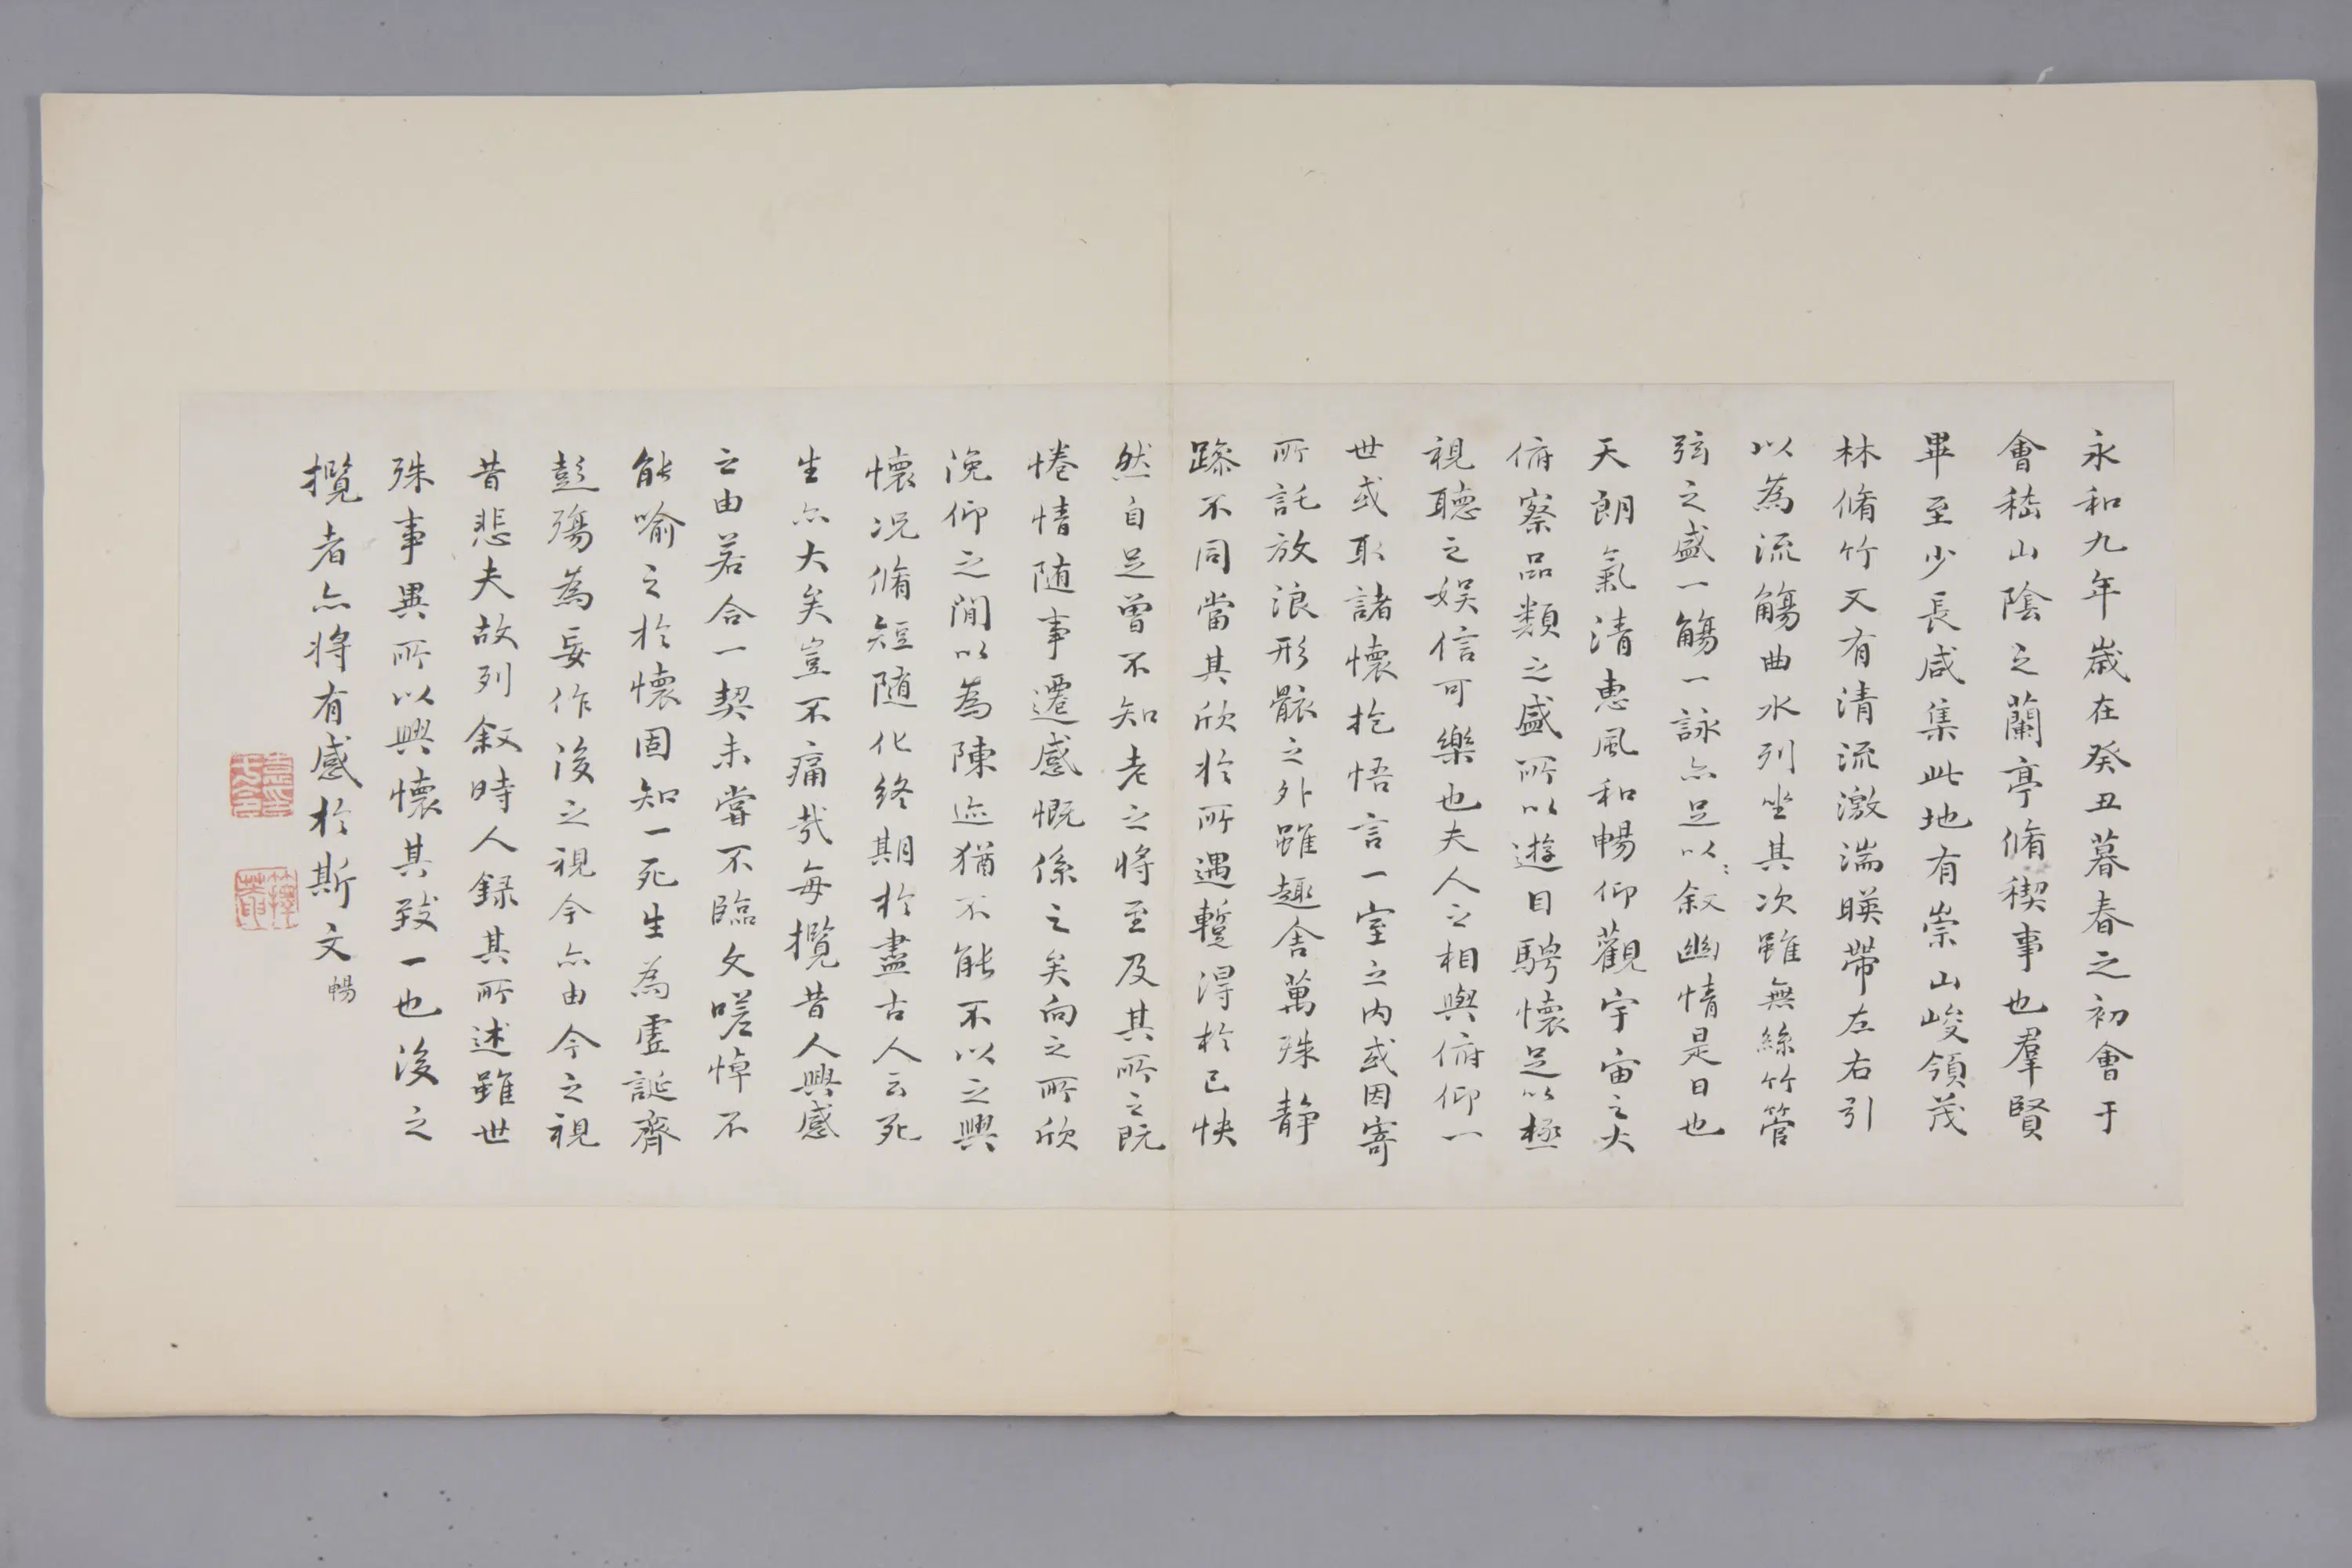 永和九年歲在癸丑暮春之初會于
會嵇山陰之蘭亭脩稧事也羣賢
畢至少長咸集此地有崇山峻領茂
林脩竹又有清流激湍暎帶左右引
以為流觴曲水列坐其次雖無絲竹管
弦之盛一觴一詠亦足以敘幽情是日也
天朗氣清惠風和暢仰觀宇宙之大
俯察品類之盛所以遊目騁懷足以極
視聽之娛信可樂也夫人之相與俯仰一
世或取諸懷抱悟言一室之內或因寄
所託放浪形骸之外雖趣舍萬殊靜
躁不同當其欣於所遇蹔得於己快
然自足曾不知老之將至及其所之既
惓情随事遷感慨係之矣向之所欣
俛仰之閒以為陳迹猶不能不以之興
懷况脩短随化終期於盡古人云死
生亦大矣豈不痛哉每攬昔人興感
之由若合一契未嘗不臨文嗟悼不
能喻之於懷固知一死生為虛誕齊
彭殤為妄作後之視今亦由今之視
昔悲夫故列敘時人錄其所述雖世
殊事異所以興懷其致一也後之
攬者亦將有感於斯文暢